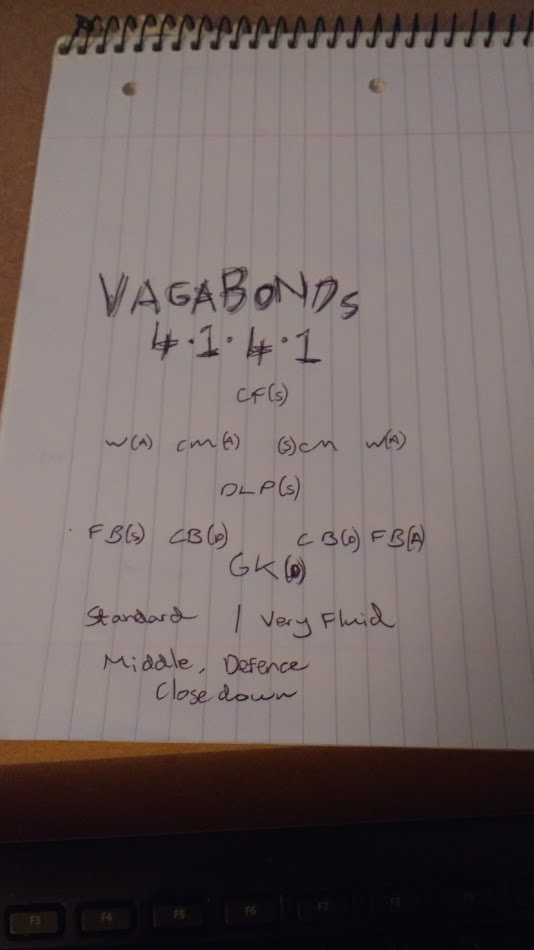 VAGABONDS
4.1.4.1
CF(S)
W(A) CM(A) (S)CM W(A)
DLP(S)
FB(S) CB(D) CB(D) FB(A)
GK(D)
Standard / Very Fluid
Middle, Defence
Close down
F3 F4 F5 F6 F7 F8